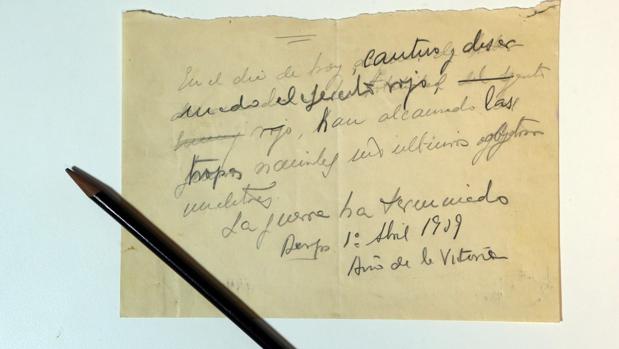 En el dia de hoy, cautivo y desar
mado el Ejercito rojo
rojo, han alcanzado las
tropas nacionales sus ultimos objetivos
militares.
La guerra ha terminado
Burgos 1º Abril 1939
Año de la Victoria